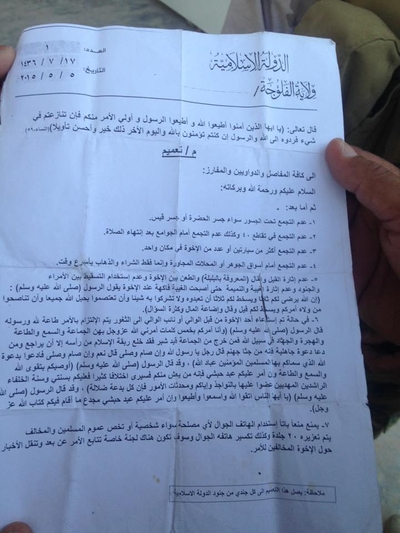 الدولة الاسلامية
ولاية الفلوجة/
العدد: ١
١٤٣٦/٧/١٧
التاريخ: ٢٠١٥/٥/٥
قال تعالى: (يا ايها الذين آمنوا أطيعوا الله و أطيعوا الرسول و أولي الأمر منكم فإن تنازعتم في
شيء فردوه الى الله والرسول إن كنتم تؤمنون بالله واليوم الآخر ذلك خير وأحسن تأويلا)
م / تعميم
الى كافة المفاصل والدواوين والمفارز:
السلام عليكم ورحمة الله وبركاته:
ثم أما بعد:
١- عدم التجمع تحت الجسور سواء جسر الحضرة أو جسر قيس.
٢- عدم التجمع في تقاطع ٤٠ وكذلك عدم التجمع أمام الجوامع بعد إنتهاء الصلاة.
٣- عدم التجمع أكثر من سيارتين أو عدد من الإخوة في مكان واحد.
٤- عدم التجمع امام اسواق الجوهر أو المحلات المجاورة وإنما فقط الشراء والذهاب بأسرع وقت.
٥- عدم إثارة القيل والقال (المعروفة بالبلبلة) والطعن بين الإخوة وعدم إستخدام التسقيط بين الأمراء
والجنود وعدم إثارة الغيبة والنميمة حتى أصبحت الغيبة فاكهة عند الإخوة بقول الرسول (صلى الله عليه وسلم):
(إن الله يرضى لكم ثلاثا ويسخط لكم ثلاثا أن تعبدوه ولا تشركوا به شيئا وأن تعتصموا بحبل الله جميعا وأن تناصحوا
من ولاه أمركم ويسخط لكم قيل وقال وإضاعة المال وكثرة السؤال).
٦- في حالة تم إستدعاء أحد الإخوة من قبل الوالي أو نائب الوالي الى الثغور يتم الإلتزام بالأمر طاعة لله ورسوله
قال الرسول (صلى الله عليه وسلم) (وأنا أمركم بخمس كلمات أمرني الله عزوجل بهن الجماعة والسمع والطاعة
والهجرة والجهاد في سبيل الله فمن خرج من الجماعة قيد شبر فقد خلع ربقة الإسلام من رأسه إلا أن يراجع ومن
دعا دعوة جاهلية فانه من جثا جهنم قال رجل يا رسول الله وان صام وصلى قال نعم وإن صام وصلى فادعوا بدعوة
الله الذي سماكم بها المسلمين المؤمنين عباد الله)، وقد قال الرسول (صلى الله عليه وسلم) (أوصيكم بتقوى الله
والسمع والطاعة وإن أمر عليكم عبد حبشي فإنه من يعش منكم فسيرى إختلافا كثيرا فعليكم بسنتي وسنة الخلفاء
الراشدين المهديين عضوا عليها بالنواجذ وإياكم ومحدثات الأمور فإن كل بدعة ضلالة)، وقد قال الرسول (صلى الله
عليه وسلم) (يا أيها الناس اتقوا الله واسمعوا وأطيعوا وإن أمر عليكم عبد حبشي مجدع ما أقام فيكم كتاب الله عز
وجل).
٧- يمنع منعاً باتا إستخدام الهاتف الجوال لأي مصلحة سواء شخصية أو تخص عموم المسلمين والمخالف
يتم تعزيره ٢٠ جلدة وكذلك تكسير هاتفه الجوال وسوف تكون هناك لجنة خاصة تتابع الأمر عن بعد وتنقل الأخبار
حول الإخوة المخالفين للأمر.
ملاحظة: يصل هذا التعميم الى كل جندي من جنود الدولة الاسلامية